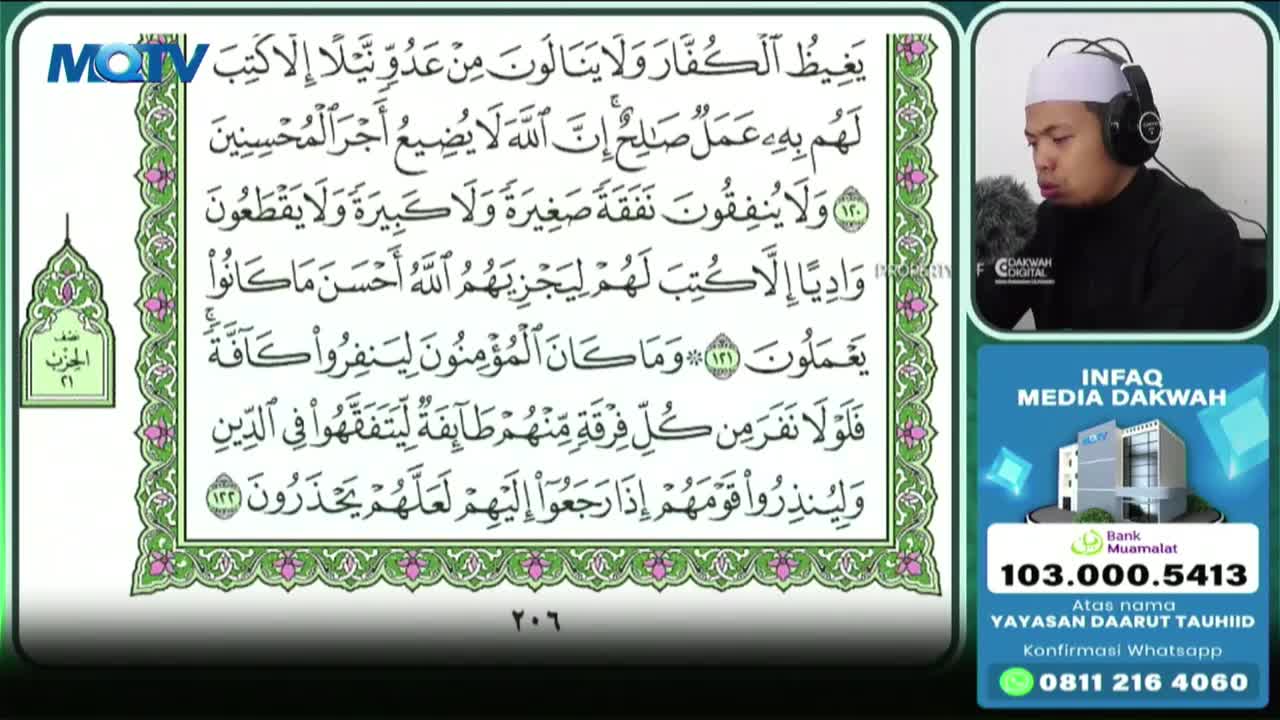 MQTV
يَغِيظُ ٱلْكُفَّارَ وَلَا يَنَالُونَ مِنْ عَدُوٍّ نَّيْلًا إِلَّا كُتِبَ
لَهُم بِهِۦ عَمَلٌ صَٰلِحٌ ۚ إِنَّ ٱللَّهَ لَا يُضِيعُ أَجْرَ ٱلْمُحْسِنِينَ
١٢٠ وَلَا يُنفِقُونَ نَفَقَةً صَغِيرَةً وَلَا كَبِيرَةً وَلَا يَقْطَعُونَ
وَادِيًا إِلَّا كُتِبَ لَهُمْ لِيَجْزِيَهُمُ ٱللَّهُ أَحْسَنَ مَا كَانُوا۟
يَعْمَلُونَ ١٢١ ۞ وَمَا كَانَ ٱلْمُؤْمِنُونَ لِيَنفِرُوا۟ كَآفَّةً ۚ
فَلَوْلَا نَفَرَ مِن كُلِّ فِرْقَةٍ مِّنْهُمْ طَآئِفَةٌ لِّيَتَفَقَّهُوا۟ فِى ٱلدِّينِ
وَلِيُنذِرُوا۟ قَوْمَهُمْ إِذَا رَجَعُوٓا۟ إِلَيْهِمْ لَعَلَّهُمْ يَحْذَرُونَ ١٢٢
نصف
الحزب
٢١
٢٠٦
PROPERTY OF
DAKWAH
DIGITAL
INFAQ
MEDIA DAKWAH
MQTV
Bank
Muamalat
103.000.5413
Atas nama
YAYASAN DAARUT TAUHIID
Konfirmasi Whatsapp
0811 216 4060